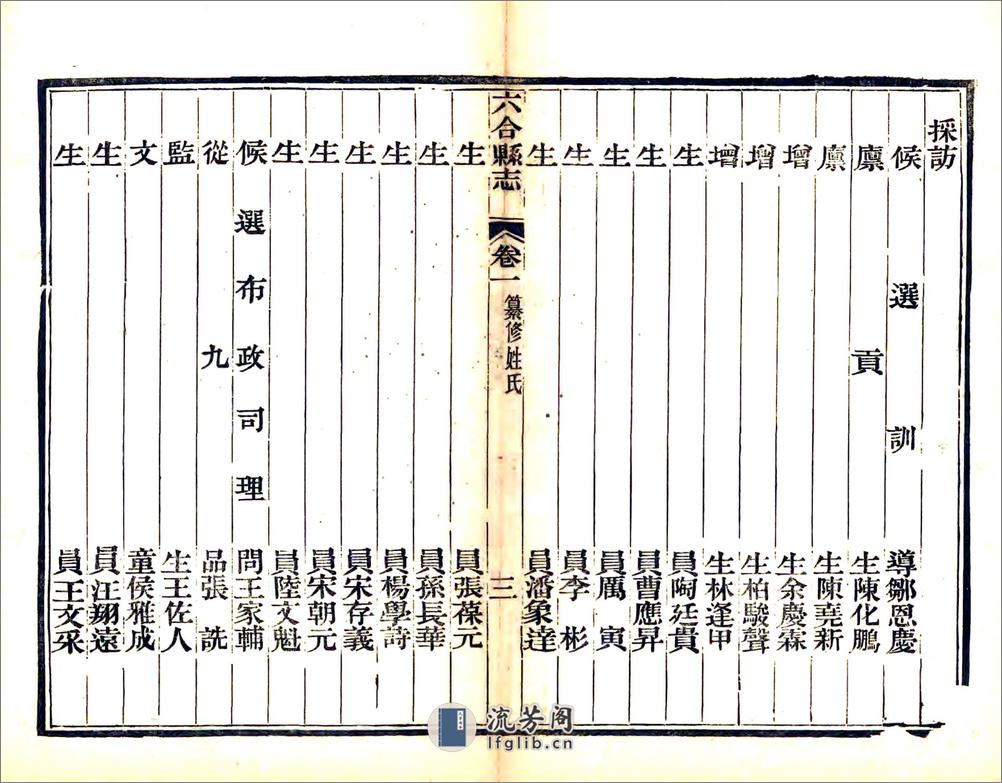 採訪
候選訓導鄒恩慶
廪貢生陳化鵬
廪生陳堯新
增生余慶霖
增生柏駿聲
增生林逢甲
生員陶廷貴
生員曹應昇
生員厲寅
生員李彬
生員潘象達
六合縣志 卷一 纂修姓氏 三
生員張葆元
生員孫長華
生員楊學詩
生員宋存義
生員宋朝元
生員陸文魁
候選布政司理問王家輔
從九品張詵
監生王佐人
文童侯雅成
生員汪翔遠
生員王文采
流芳阁
lfglib.cn